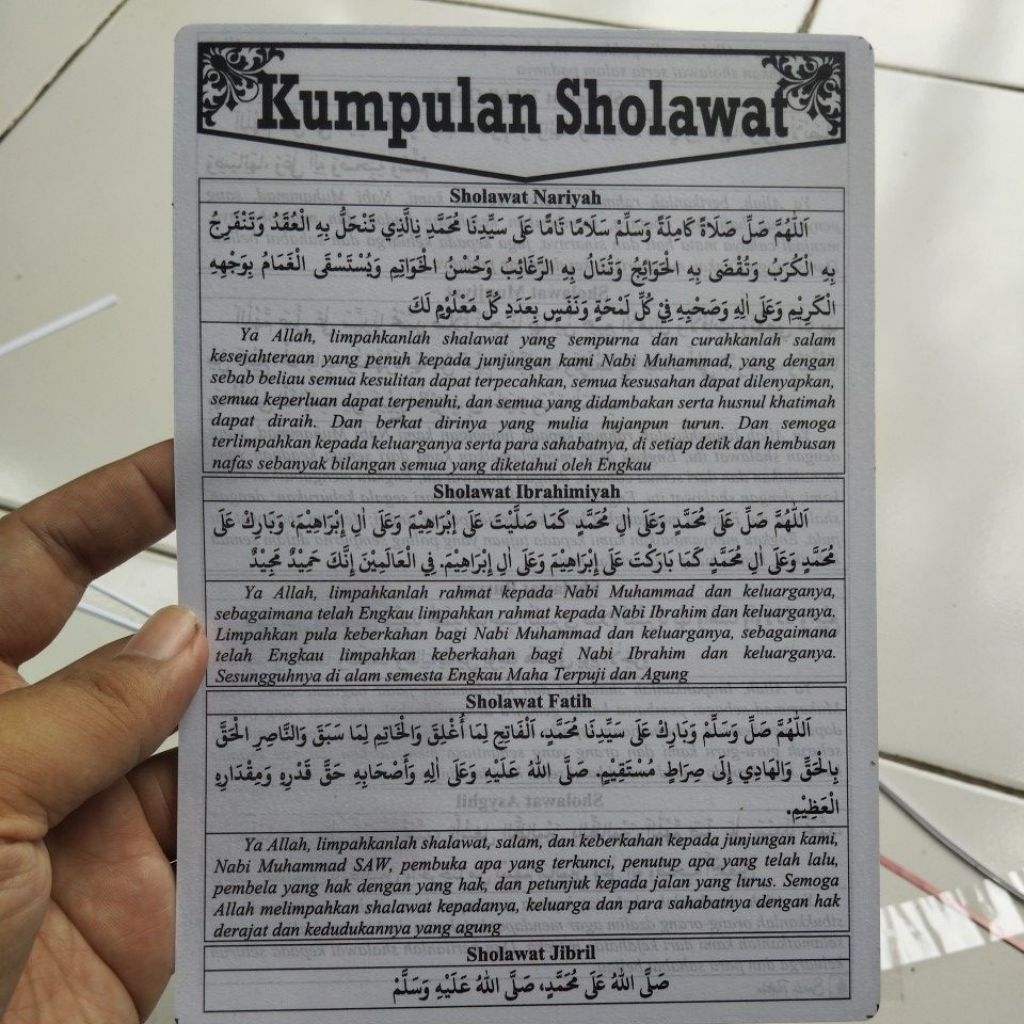 Kumpulan Sholawat
Sholawat Nariyah
اَللّٰهُمَّ صَلِّ صَلَاةً كَامِلَةً وَسَلِّمْ سَلَامًا تَامًّا عَلَى سَيِّدِنَا مُحَمَّدِ نِالَّذِي تَنْحَلُّ بِهِ الْعُقَدُ وَتَنْفَرِجُ
بِهِ الْكُرَبُ وَتُقْضَى بِهِ الْحَوَائِجُ وَتُنَالُ بِهِ الرَّغَائِبُ وَحُسْنُ الْخَوَاتِمِ وَيُسْتَسْقَى الْغَمَامُ بِوَجْهِهِ
الْكَرِيْمِ وَعَلَى اٰلِهِ وَصَحْبِهِ فِيْ كُلِّ لَمْحَةٍ وَنَفَسٍ بِعَدَدِ كُلِّ مَعْلُوْمٍ لَكَ
Ya Allah, limpahkanlah shalawat yang sempurna dan curahkanlah salam
kesejahteraan yang penuh kepada junjungan kami Nabi Muhammad, yang dengan
sebab beliau semua kesulitan dapat terpecahkan, semua kesusahan dapat dilenyapkan,
semua keperluan dapat terpenuhi, dan semua yang didambakan serta husnul khatimah
dapat diraih. Dan berkat dirinya yang mulia hujanpun turun. Dan semoga
terlimpahkan kepada keluarganya serta para sahabatnya, di setiap detik dan hembusan
nafas sebanyak bilangan semua yang diketahui oleh Engkau
Sholawat Ibrahimiyah
اَللّٰهُمَّ صَلِّ عَلَى مُحَمَّدٍ وَعَلَى اٰلِ مُحَمَّدٍ كَمَا صَلَّيْتَ عَلَى إِبْرَاهِيْمَ وَعَلَى اٰلِ إِبْرَاهِيْمَ، وَبَارِكْ عَلَى
مُحَمَّدٍ وَعَلَى اٰلِ مُحَمَّدٍ كَمَا بَارَكْتَ عَلَى إِبْرَاهِيْمَ وَعَلَى اٰلِ إِبْرَاهِيْمَ. فِي الْعَالَمِيْنَ إِنَّكَ حَمِيْدٌ مَجِيْدٌ
Ya Allah, limpahkanlah rahmat kepada Nabi Muhammad dan keluarganya,
sebagaimana telah Engkau limpahkan rahmat kepada Nabi Ibrahim dan keluarganya.
Limpahkan pula keberkahan bagi Nabi Muhammad dan keluarganya, sebagaimana
telah Engkau limpahkan keberkahan bagi Nabi Ibrahim dan keluarganya.
Sesungguhnya di alam semesta Engkau Maha Terpuji dan Agung
Sholawat Fatih
اَللّٰهُمَّ صَلِّ وَسَلِّمْ وَبَارِكْ عَلَى سَيِّدِنَا مُحَمَّدٍ، اَلْفَاتِحِ لِمَا أُغْلِقَ وَالْخَاتِمِ لِمَا سَبَقَ وَالنَّاصِرِ الْحَقَّ
بِالْحَقِّ وَالْهَادِي إِلَى صِرَاطٍ مُسْتَقِيْمٍ. صَلَّى اللهُ عَلَيْهِ وَعَلَى اٰلِهِ وَأَصْحَابِهِ حَقَّ قَدْرِهِ وَمِقْدَارِهِ
الْعَظِيْمِ.
Ya Allah, limpahkanlah shalawat, salam, dan keberkahan kepada junjungan kami,
Nabi Muhammad SAW, pembuka apa yang terkunci, penutup apa yang telah lalu,
pembela yang hak dengan yang hak, dan petunjuk kepada jalan yang lurus. Semoga
Allah melimpahkan shalawat kepadanya, keluarga dan para sahabatnya dengan hak
derajat dan kedudukannya yang agung
Sholawat Jibril
صَلَّى اللهُ عَلَى مُحَمَّدٍ، صَلَّى اللهُ عَلَيْهِ وَسَلَّمْ